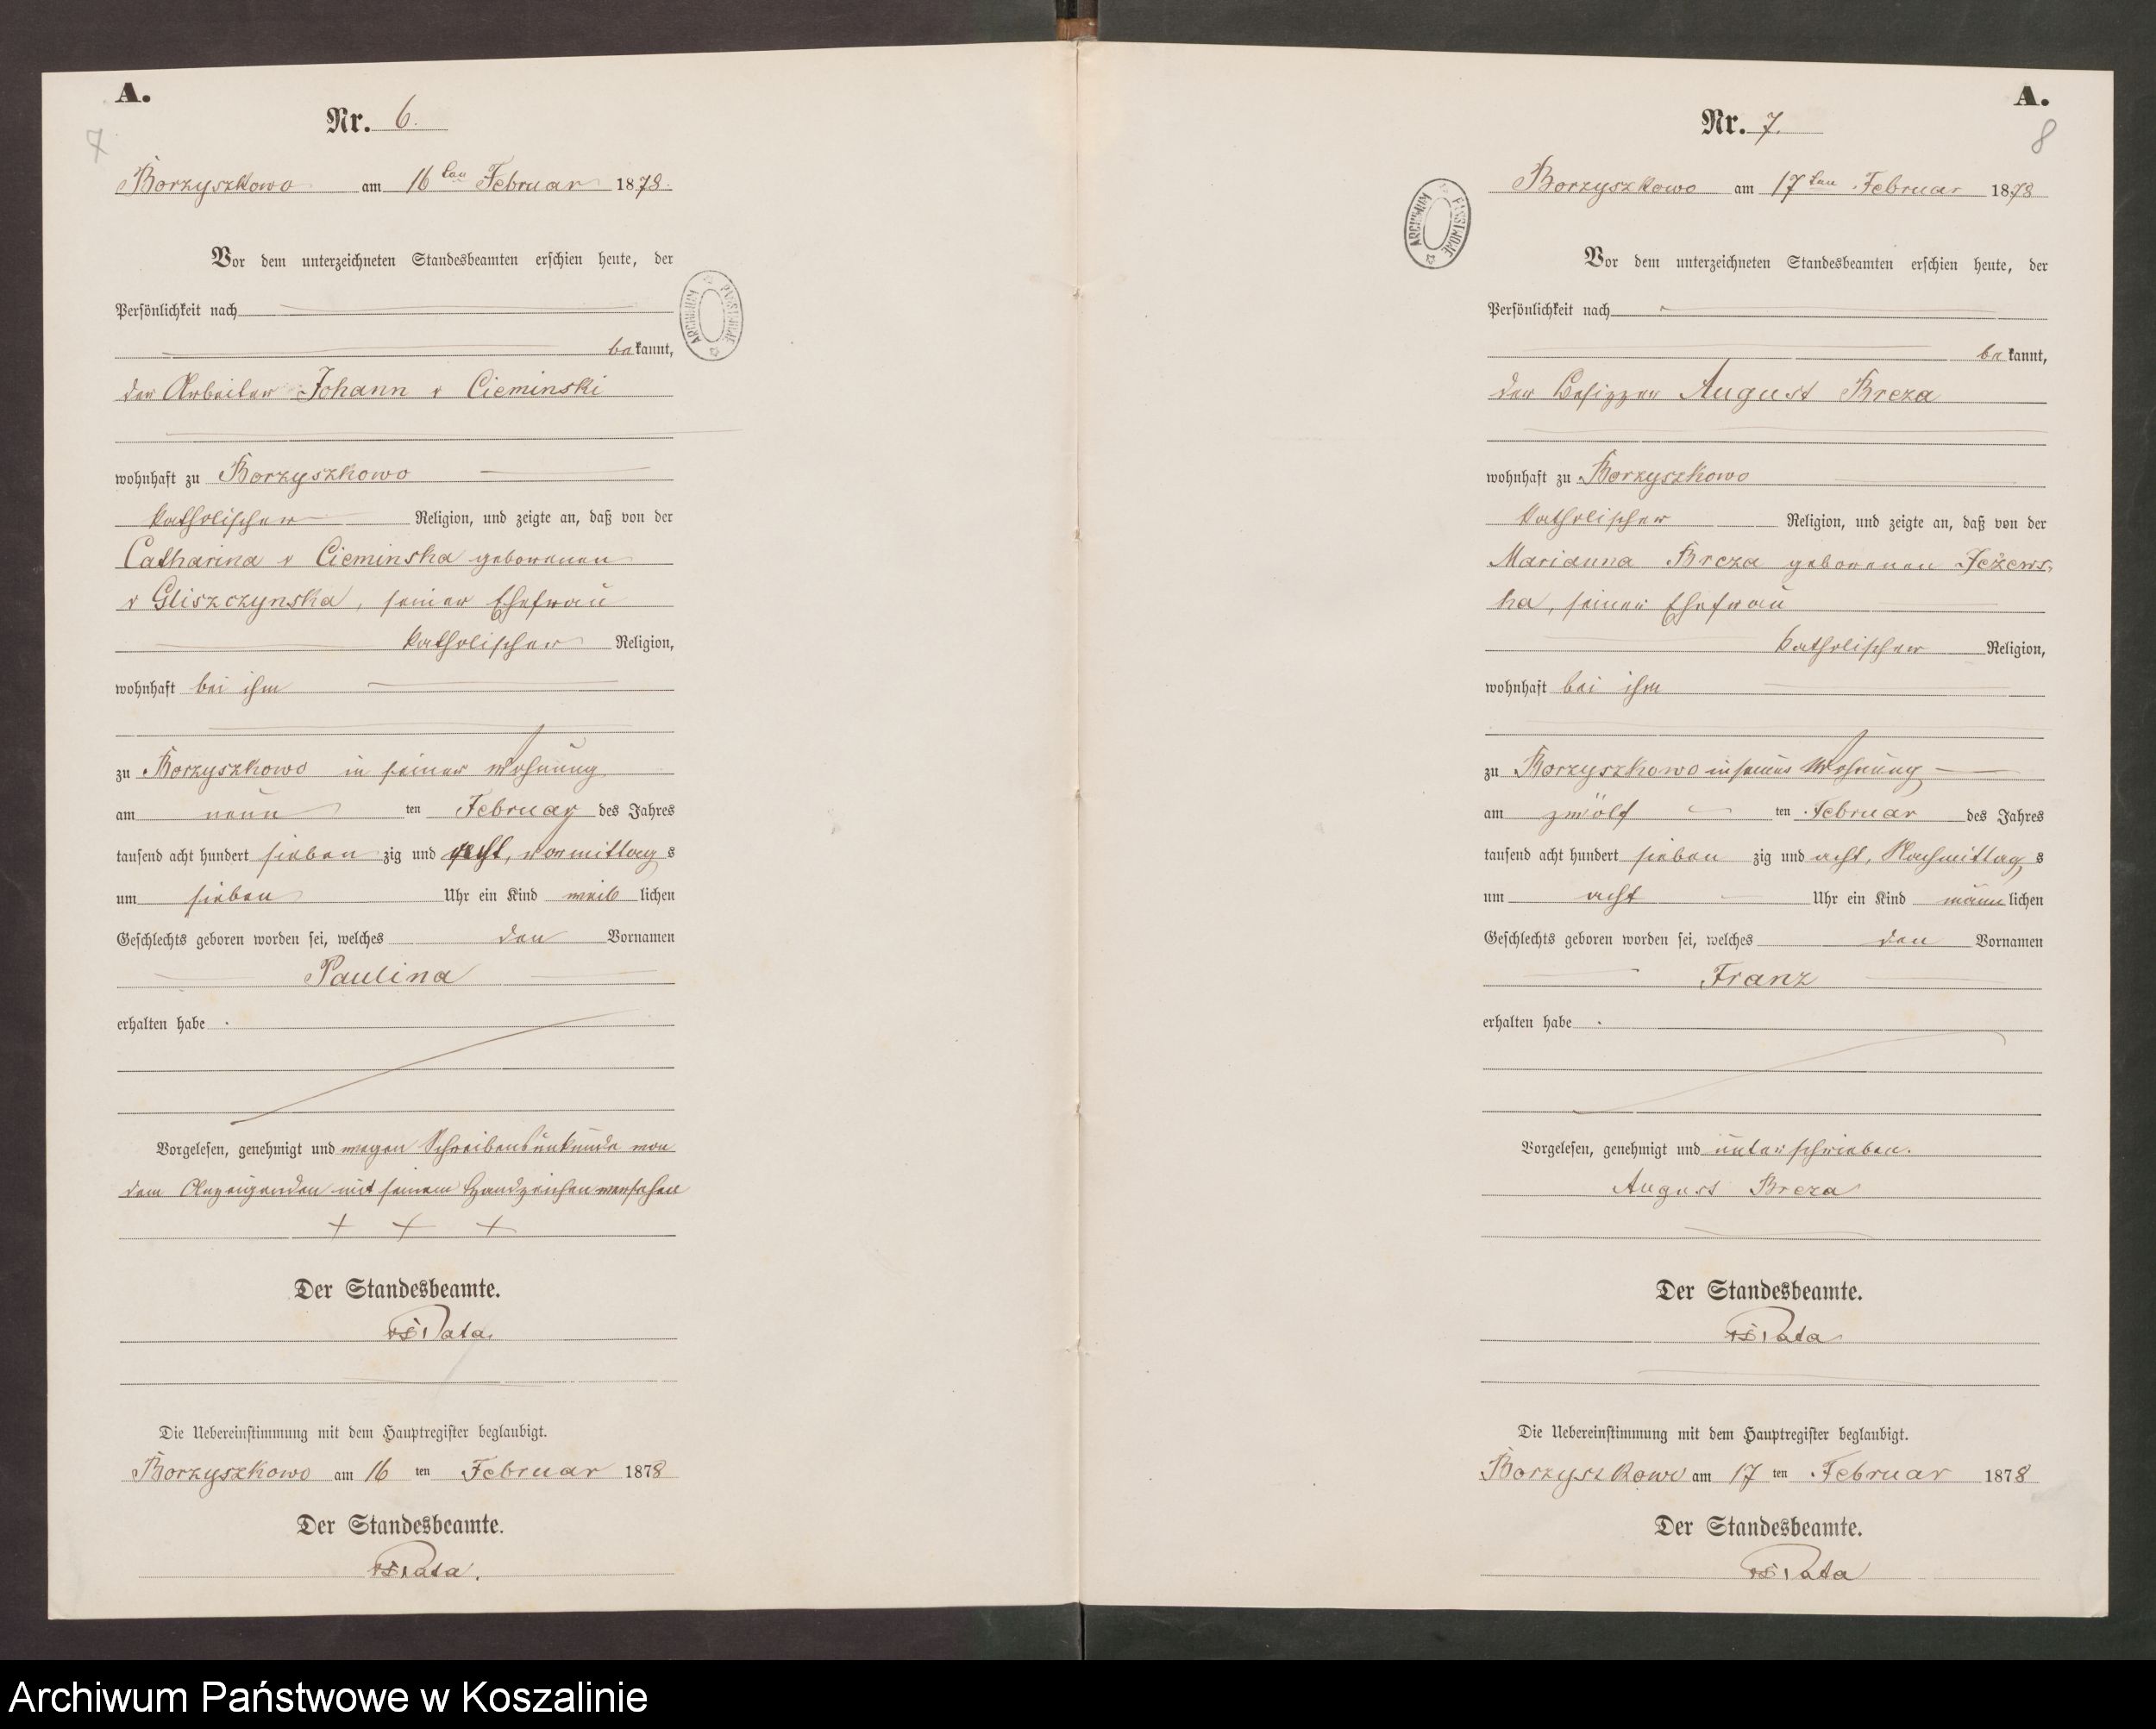 A.
7
Nr. 6.
Borzyszkowo am 16ten Februar 1878.
Vor dem unterzeichneten Standesbeamten erschien heute, der
Persönlichkeit nach
bekannt,
der Arbeiter Johann v Cieminski
wohnhaft zu Borzyszkowo
katholischer Religion, und zeigte an, daß von der
Catharina v Cieminska geborenen
v Gliszczynska, seiner Ehefrau
katholischer Religion,
wohnhaft bei ihm
zu Borzyszkowo in seiner Wohnung
am neun ten Februar des Jahres
tausend acht hundert sieben zig und acht, vormittags
um sieben Uhr ein Kind weiblichen
Geschlechts geboren worden sei, welches den Vornamen
Paulina
erhalten habe.
Vorgelesen, genehmigt und wegen Schreibensunkunde von
dem Anzeigenden mit seinem Handzeichen versehen
+ + +
Der Standesbeamte.
Pata.
Die Uebereinstimmung mit dem Hauptregister beglaubigt.
Borzyszkowo am 16 ten Februar 1878
Der Standesbeamte.
Pata.
ARCHIWUM PAŃSTWOWE
A.
8
Nr. 7.
Borzyszkowo am 17ten Februar 1878
ARCHIWUM PAŃSTWOWE
Vor dem unterzeichneten Standesbeamten erschien heute, der
Persönlichkeit nach
bekannt,
der Besizzer August Breza
wohnhaft zu Borzyszkowo
katholischer Religion, und zeigte an, daß von der
Marianna Breza geborenen Jeżews-
ka, seiner Ehefrau
katholischer Religion,
wohnhaft bei ihm
zu Borzyszkowo in seiner Wohnung
am zwölf ten Februar des Jahres
tausend acht hundert sieben zig und acht, Nachmittags
um acht Uhr ein Kind männlichen
Geschlechts geboren worden sei, welches den Vornamen
Franz
erhalten habe.
Vorgelesen, genehmigt und unterschrieben.
August Breza
Der Standesbeamte.
Pata
Die Uebereinstimmung mit dem Hauptregister beglaubigt.
Borzyszkowo am 17 ten Februar 1878
Der Standesbeamte.
Pata
Archiwum Państwowe w Koszalinie